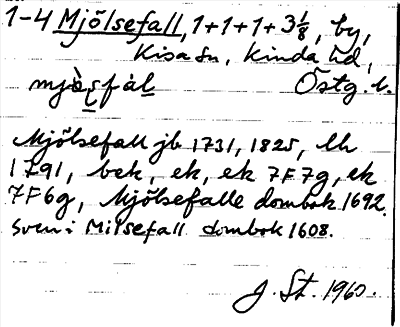 1-4 Mjölsefall, 1+1+1+3⅛, by,
Kisa sn, Kinda hd,
mjòl̤sfàl Östg. l.
Mjölsefall jb 1731, 1825, lh
1791, bek, ek, ek 7F7g, ek
7F6g, Mjölsefalle dombok 1692.
Sven i Milsefall dombok 1608.
J. St. 1960.